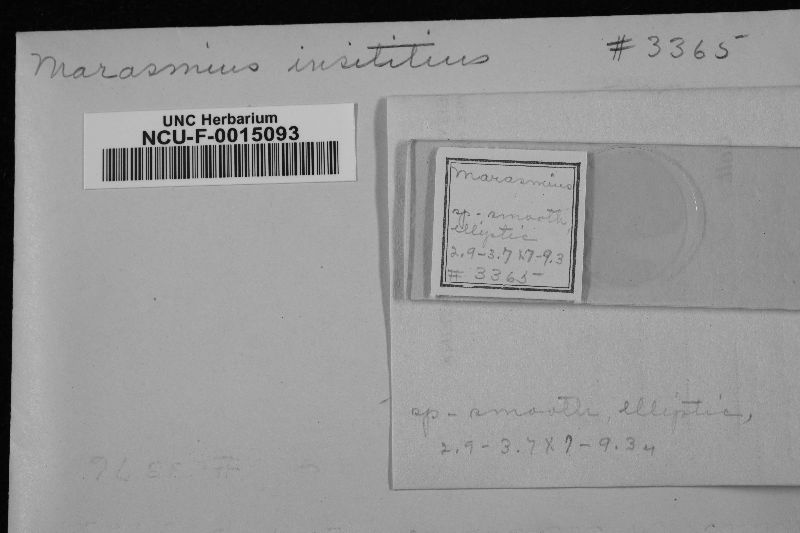 Marasmius insititius # 3365
UNC Herbarium
NCU-F-0015093
Marasmius
sp - smooth,
elliptic
2.9-3.7 X 7-9.3
# 3365
sp - smooth, elliptic,
2.9 - 3.7 X 7 - 9.3 μ